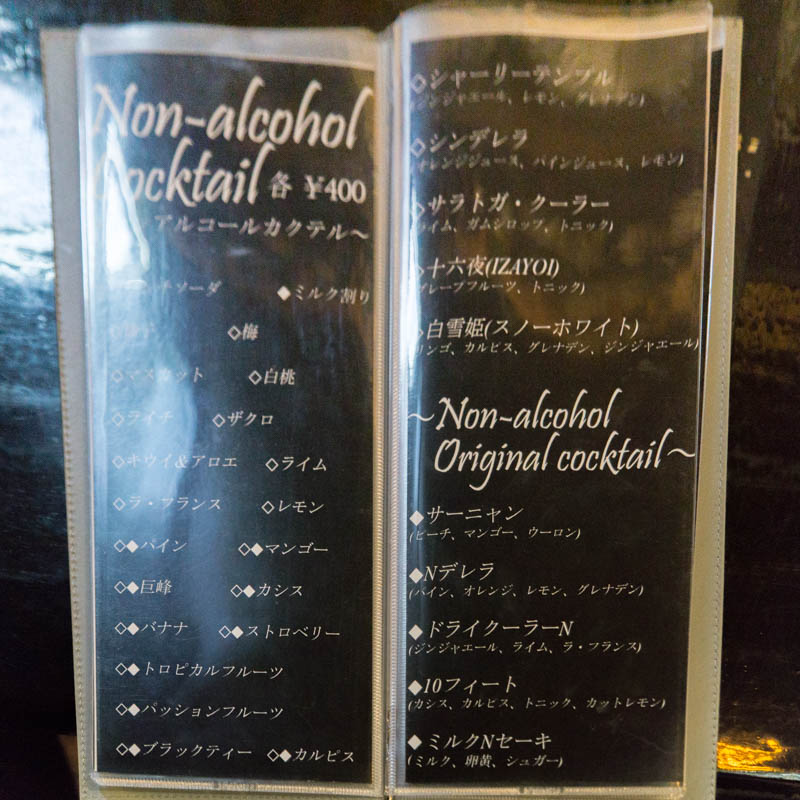 Non-alcohol
Cocktail 各 ¥400
アルコールカクテル～
ソーダ ◆ミルク割り
◇梅
◇マスカット ◇白桃
◇ライチ ◇ザクロ
◇キウイ&アロエ ◇ライム
◇ラ・フランス ◇レモン
◇◆パイン ◇◆マンゴー
◇◆巨峰 ◇◆カシス
◇◆バナナ ◇◆ストロベリー
◇◆トロピカルフルーツ
◇◆パッションフルーツ
◇◆ブラックティー ◇◆カルピス
◇シャーリーテンプル
(ジンジャエール、レモン、グレナデン)
◇シンデレラ
オレンジジュース、パインジュース、レモン)
◇サラトガ・クーラー
ライム、ガムシロップ、トニック)
◇十六夜(IZAYOI)
グレープフルーツ、トニック)
◇白雪姫(スノーホワイト)
リンゴ、カルピス、グレナデン、ジンジャエール)
～Non-alcohol
Original cocktail～
◆サーニャン
(ピーチ、マンゴー、ウーロン)
◆Nデレラ
(パイン、オレンジ、レモン、グレナデン)
◆ドライクーラーN
(ジンジャエール、ライム、ラ・フランス)
◆10フィート
(カシス、カルピス、トニック、カットレモン)
◆ミルクNセーキ
(ミルク、卵黄、シュガー)